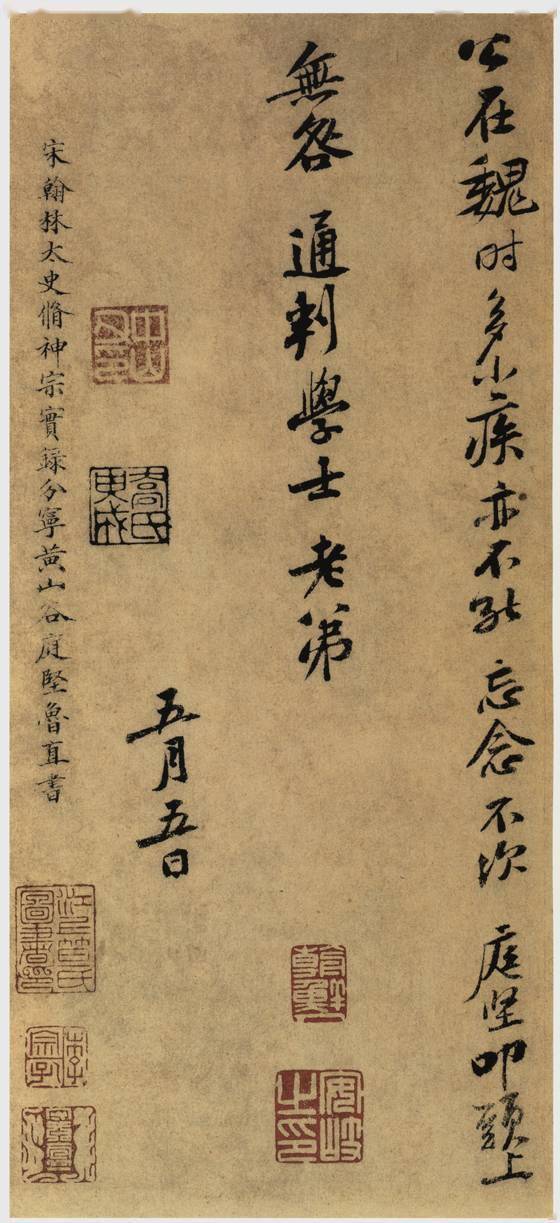 公在魏时多小疾亦不能忘念不次 庭堅叩頭上
無咎 通判學士 老弟
安岐之印
五月五日
宋翰林太史脩神宗實錄分寧黃山谷庭堅魯直書